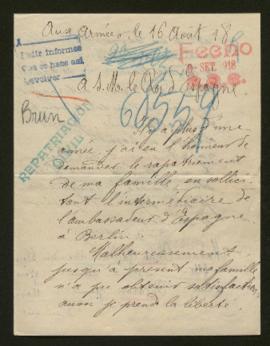 Aux Armées, le 16 Août 18
Fecho
SET. 918
A S. M. le Roi d'Espagne
60559
Brun
REPATRIACION
Il y a plus d'une
année, j'ai eu l'honneur de
demander le rapatriement
de ma famille en sollici
tant l'intermédiaire de
l'ambassadeur d'Espagne
à Berlin.
Malheureusement
jusqu'à présent ma famille
n'a pu obtenir satisfaction,
aussi je prend la liberté